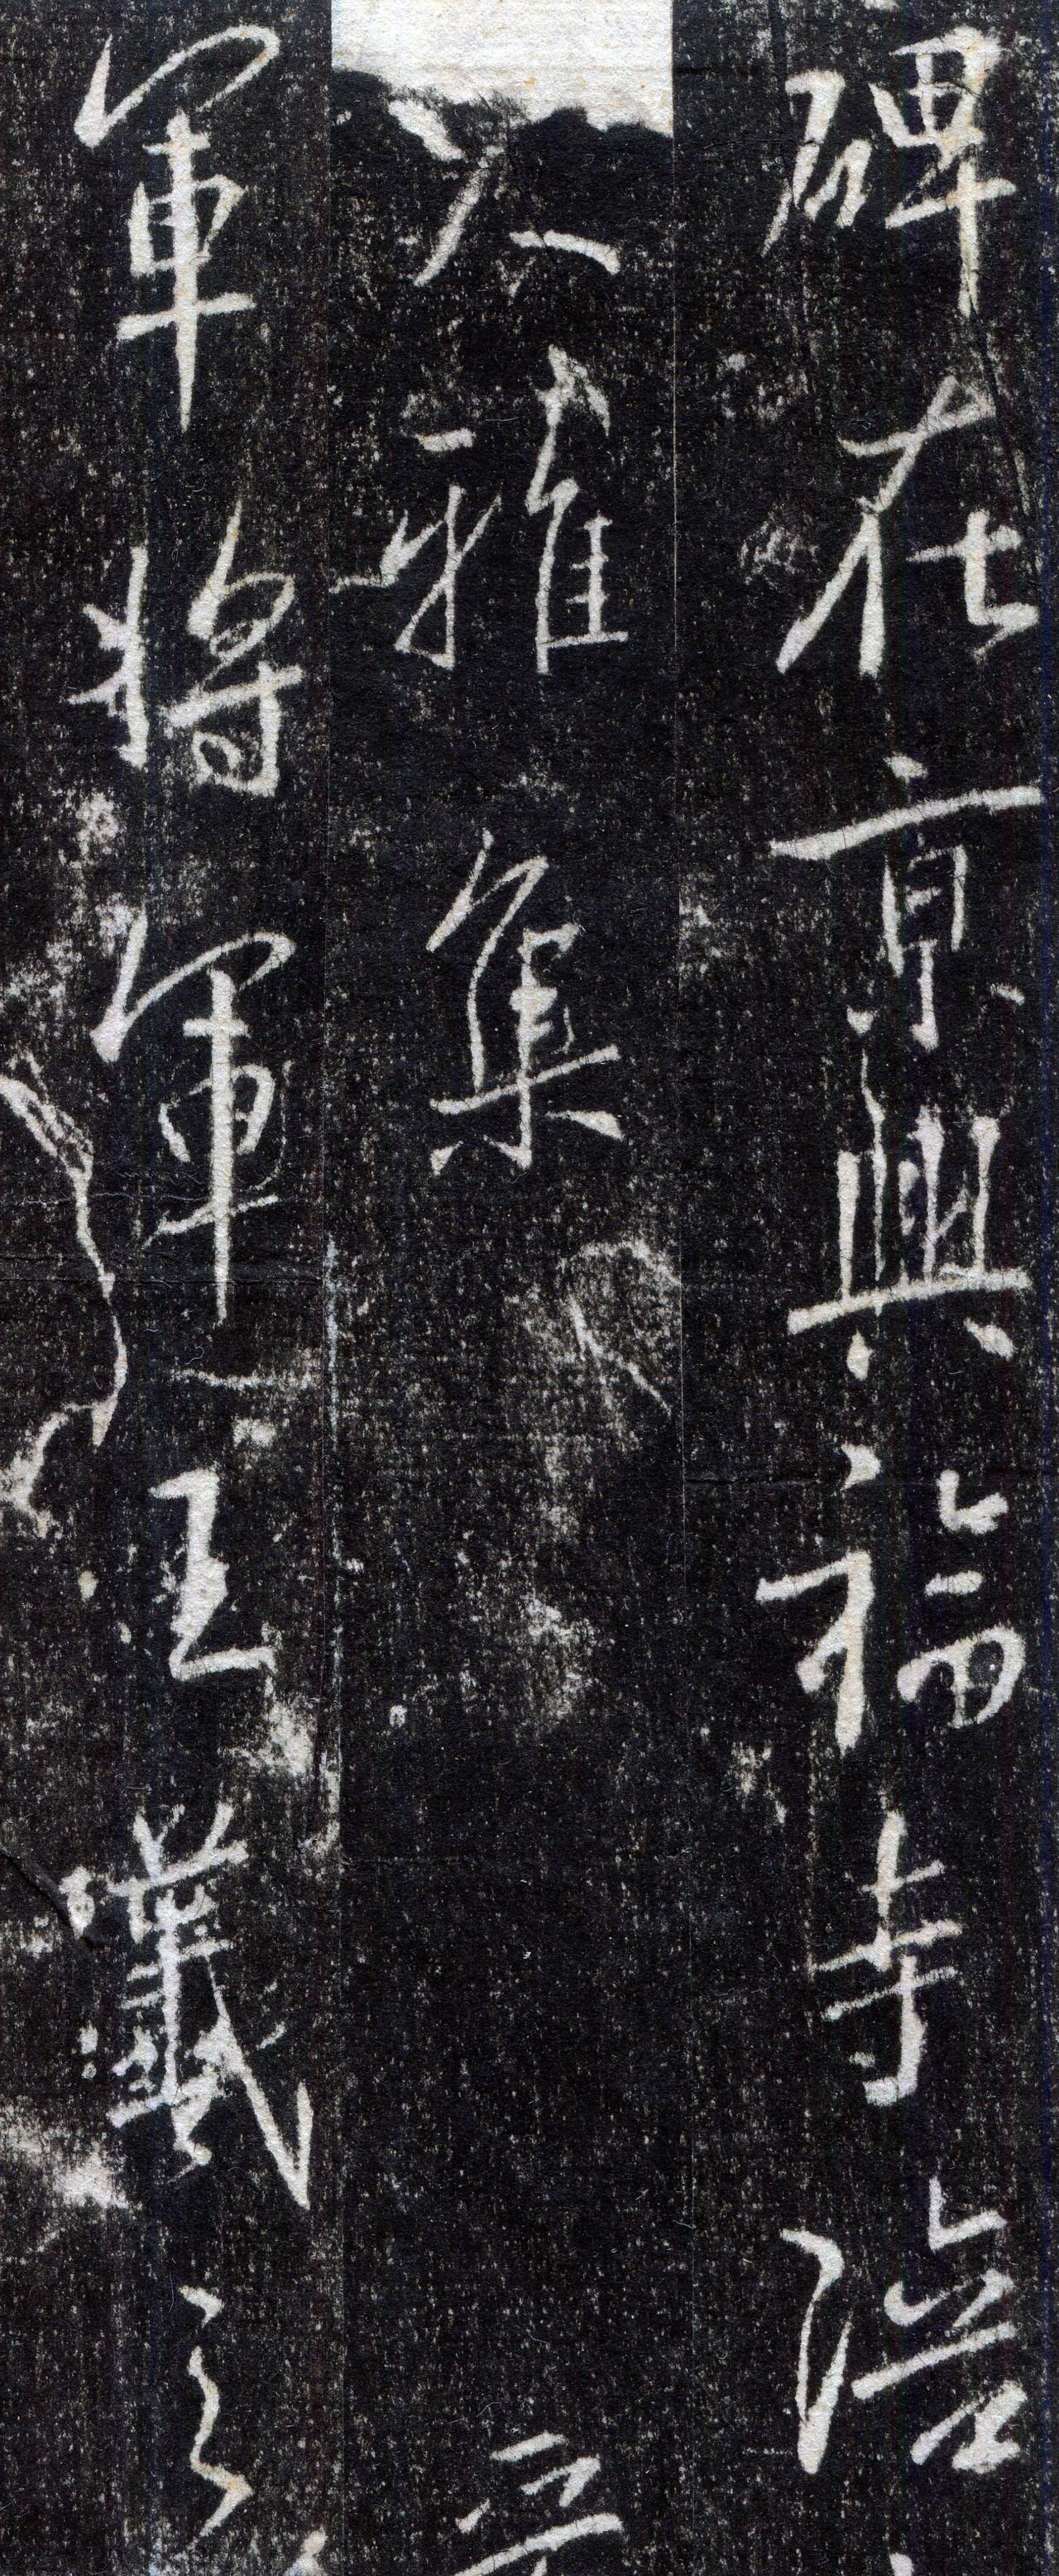 碑在京興福寺陪
大雅集
軍將軍王羲之